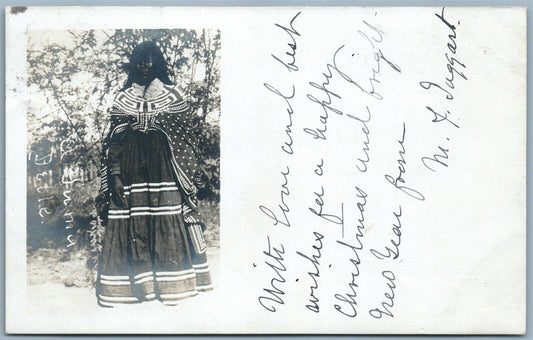 With love and best
wishes for a happy
Christmas and bright
New Year from
M. F. Taggart.